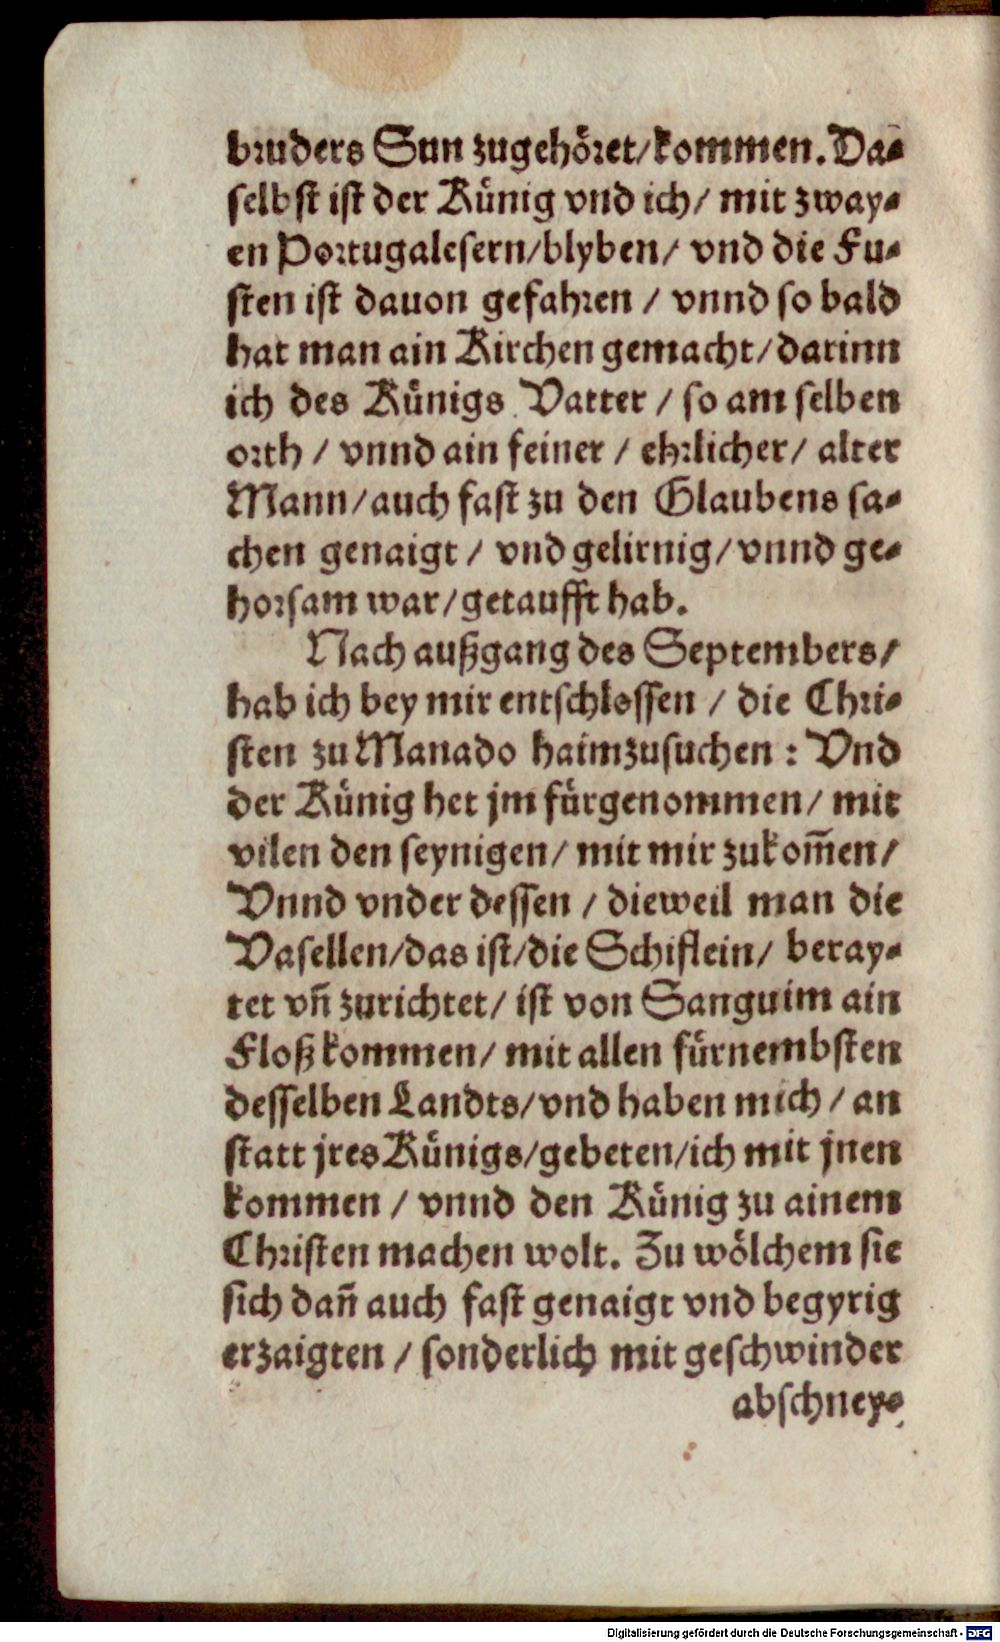 bruders Sun zugehöret/kommen. Da-
selbst ist der Künig vnd ich/ mit zway-
en Portugalesern/blyben/ vnd die Fu-
sten ist dauon gefahren / vnnd so bald
hat man ain Kirchen gemacht/darinn
ich des Künigs Vatter / so am selben
orth / vnnd ain feiner / ehrlicher/ alter
Mann/auch fast zu den Glaubens sa-
chen genaigt / vnd gelirnig/vnnd ge-
horsam war/getaufft hab.
Nach außgang des Septembers/
hab ich bey mir entschlossen / die Chri-
sten zu Manado haimzusuchen : Vnd
der Künig het jm fürgenommen/ mit
vilen den seynigen/ mit mir zukom̃en/
Vnnd vnder dessen / dieweil man die
Vasellen/das ist/die Schiflein/ beray-
tet vñ zurichtet/ ist von Sanguim ain
Floß kommen/ mit allen fürnembsten
desselben Landts/vnd haben mich / an
statt jres Künigs/gebeten/ich mit jnen
kommen / vnnd den Künig zu ainem
Christen machen wolt. Zu wölchem sie
sich dañ auch fast genaigt vnd begyrig
erzaigten / sonderlich mit geschwinder
abschney-
Digitalisierung gefördert durch die Deutsche Forschungsgemeinschaft - DFG